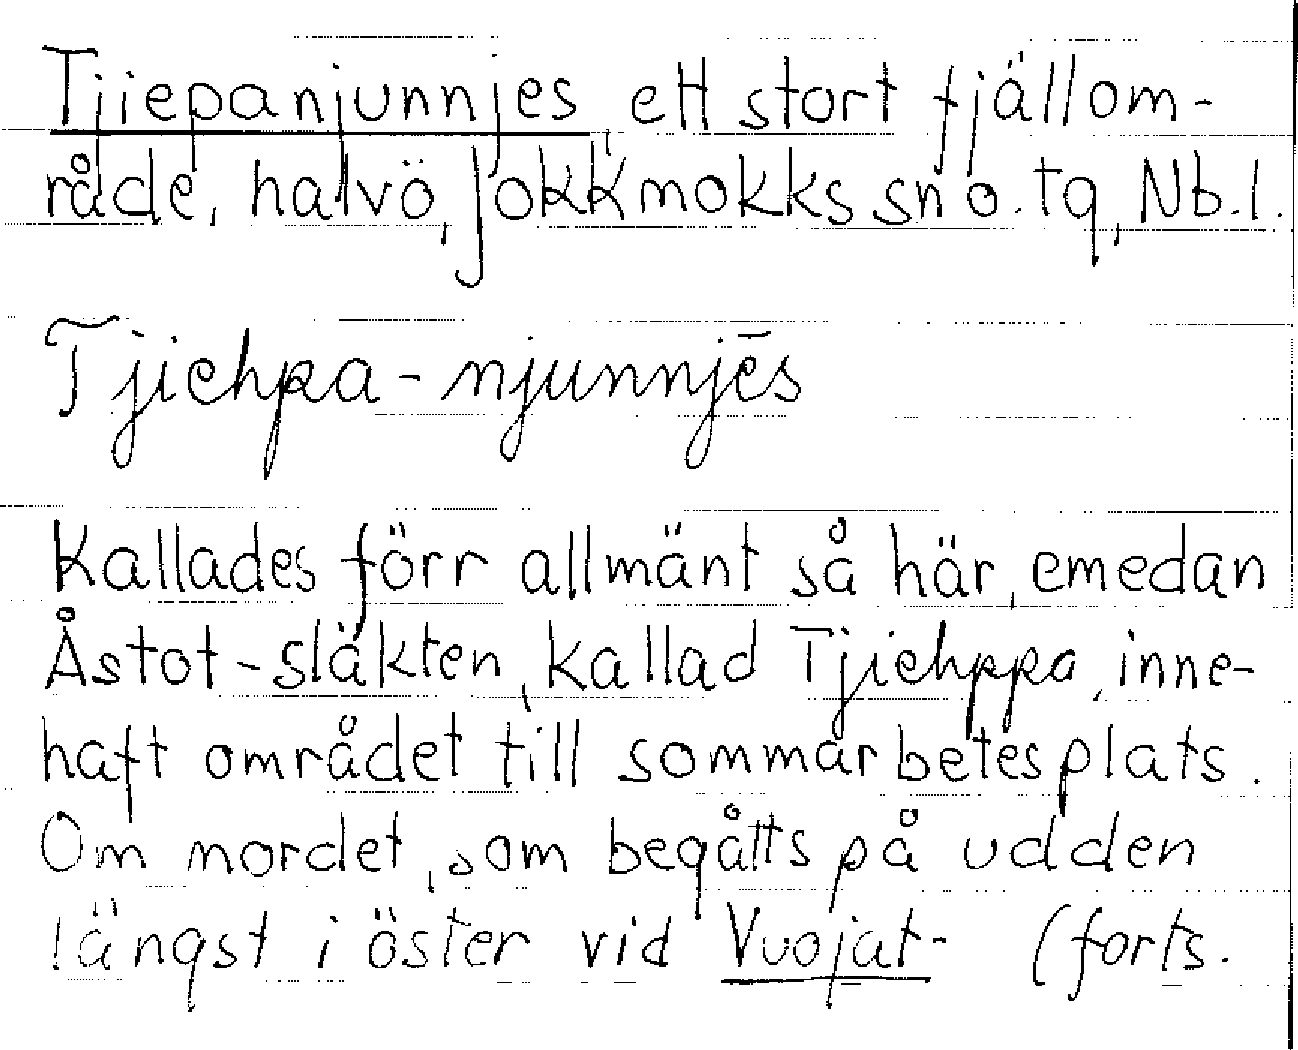 Tjiepanjunnjes ett stort fjällom-
råde, halvö, Jokkmokks sn o. tg, Nb.l.
Tjiehpa-njunnjēs
Kallades förr allmänt så här, emedan
Åstot-släkten, kallad Tjiehppa, inne-
haft området till sommarbetesplats.
Om mordet, som begåtts på udden
längst i öster vid Vuojat- (forts.